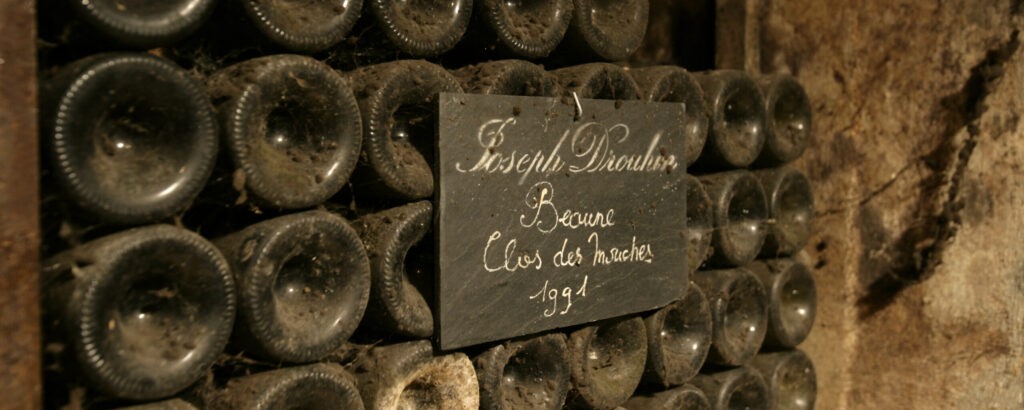 Joseph Drouhin
Beaune
Clos des Mouches
1991